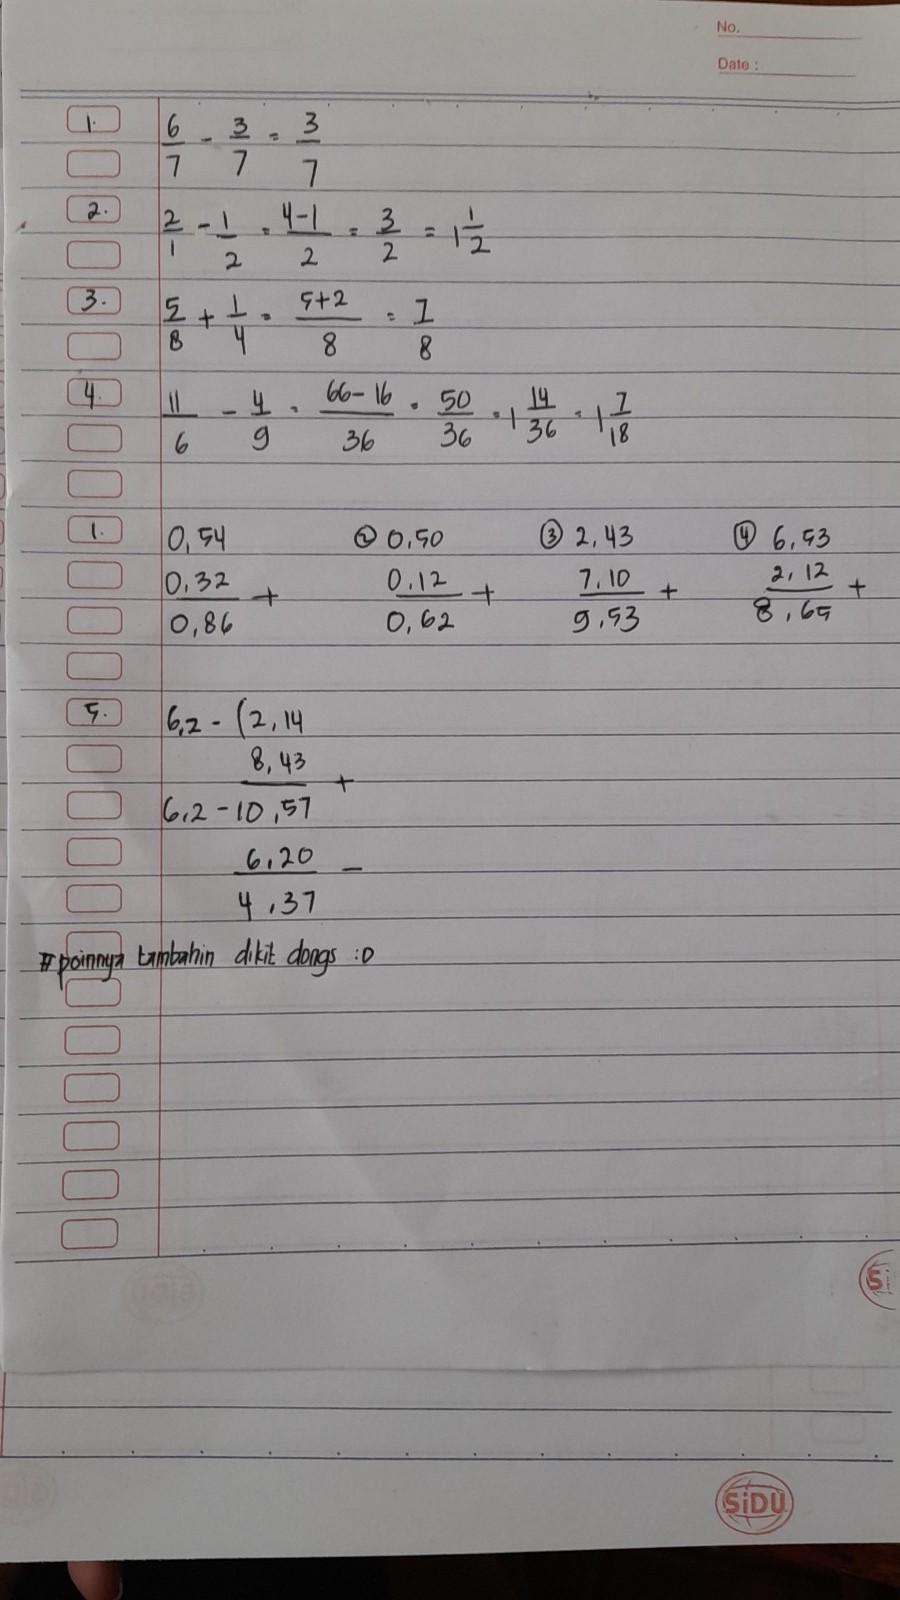 No.
Date :
1. 6/7 - 3/7 = 3/7
2. 2/1 - 1/2 = 4-1/2 = 3/2 = 1 1/2
3. 5/8 + 1/4 = 5+2/8 = 7/8
4. 11/6 - 4/9 = 66-16/36 = 50/36 = 1 14/36 = 1 7/18
1. 0,54 ② 0,50 ③ 2,43 ④ 6,53
0,32 + 0,12 + 7,10 + 2,12 +
0,86 0,62 9,53 8,65
5. 6,2 - (2,14
8,43 +
6,2 - 10,57
6,20 -
4,37
#poinnya tambahin dikit dongs :D
SiDU